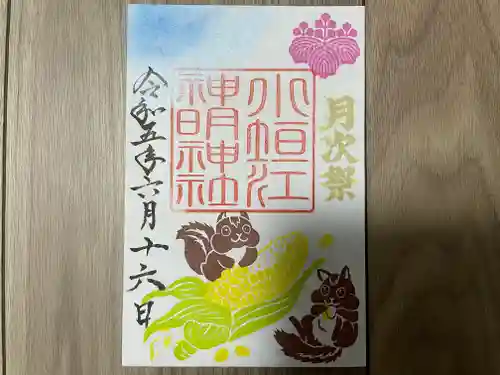 月次祭
小垣江
神明神社
令和五年六月十六日